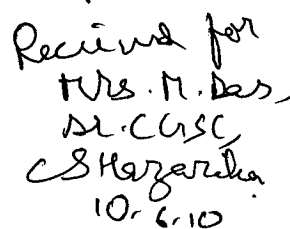 Received for
Mrs. M. Das,
Sr. CGSC,
CSHazarika
10.6.10